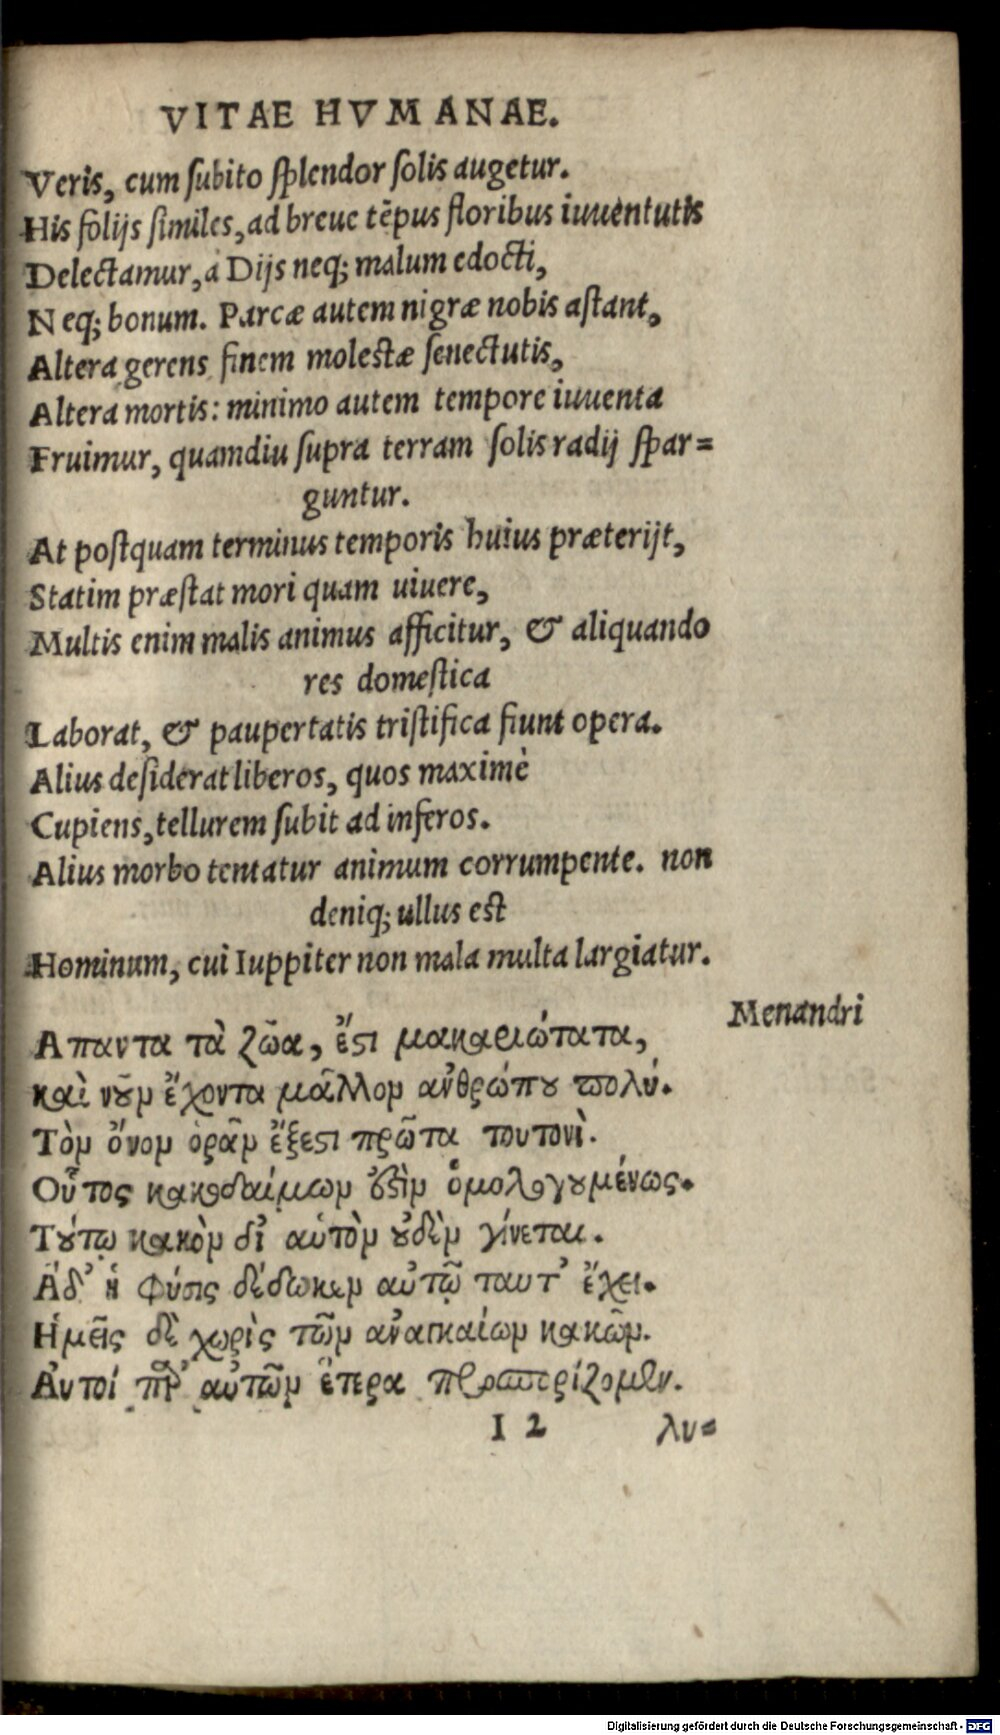 VITAE HVMANAE.
Veris, cum subito splendor solis augetur.
His folijs similes, ad breue tẽpus floribus iuuentutis
Delectamur, à Dijs neq; malum edocti,
Neq; bonum. Parcæ autem nigræ nobis astant,
Altera gerens finem molestæ senectutis,
Altera mortis: minimo autem tempore iuuenta
Fruimur, quamdiu supra terram solis radij spar=
guntur.
At postquam terminus temporis huius præterijt,
Statim præstat mori quam uiuere,
Multis enim malis animus afficitur, & aliquando
res domestica
Laborat, & paupertatis tristifica fiunt opera.
Alius desiderat liberos, quos maximè
Cupiens, tellurem subit ad inferos.
Alius morbo tentatur animum corrumpente. non
deniq; ullus est
Hominum, cui Iuppiter non mala multa largiatur.
Menandri
Απαντα τὰ ζῶα, ἔϛι μακαριώτατα,
καὶ νȣ̃ν ἔχοντα μᾶλλον ἀνθρώπȣ πολύ.
Τὸν ὄνον ὁρᾶν ἔξεϛι πρῶτα τουτονὶ.
Οὗτος κακοδαίμων ὅϛὶν ὁμολογȣμένως.
Τȣ́τῳ κακὸν δἰ αὐτὸν ȣδὲν γίνεται.
Ἃ δ' ἡ φύσις δέδωκεν αὐτῷ ταυτ' ἔχει.
Ἡμεῖς δὲ χωρὶς τῶν ἀναγκαίων κακῶν.
Ἀυτοί παρ' αὐτῶν ἕτερα προσπορίζομεν.
I 2
λυ=
Digitalisierung gefördert durch die Deutsche Forschungsgemeinschaft - DFG